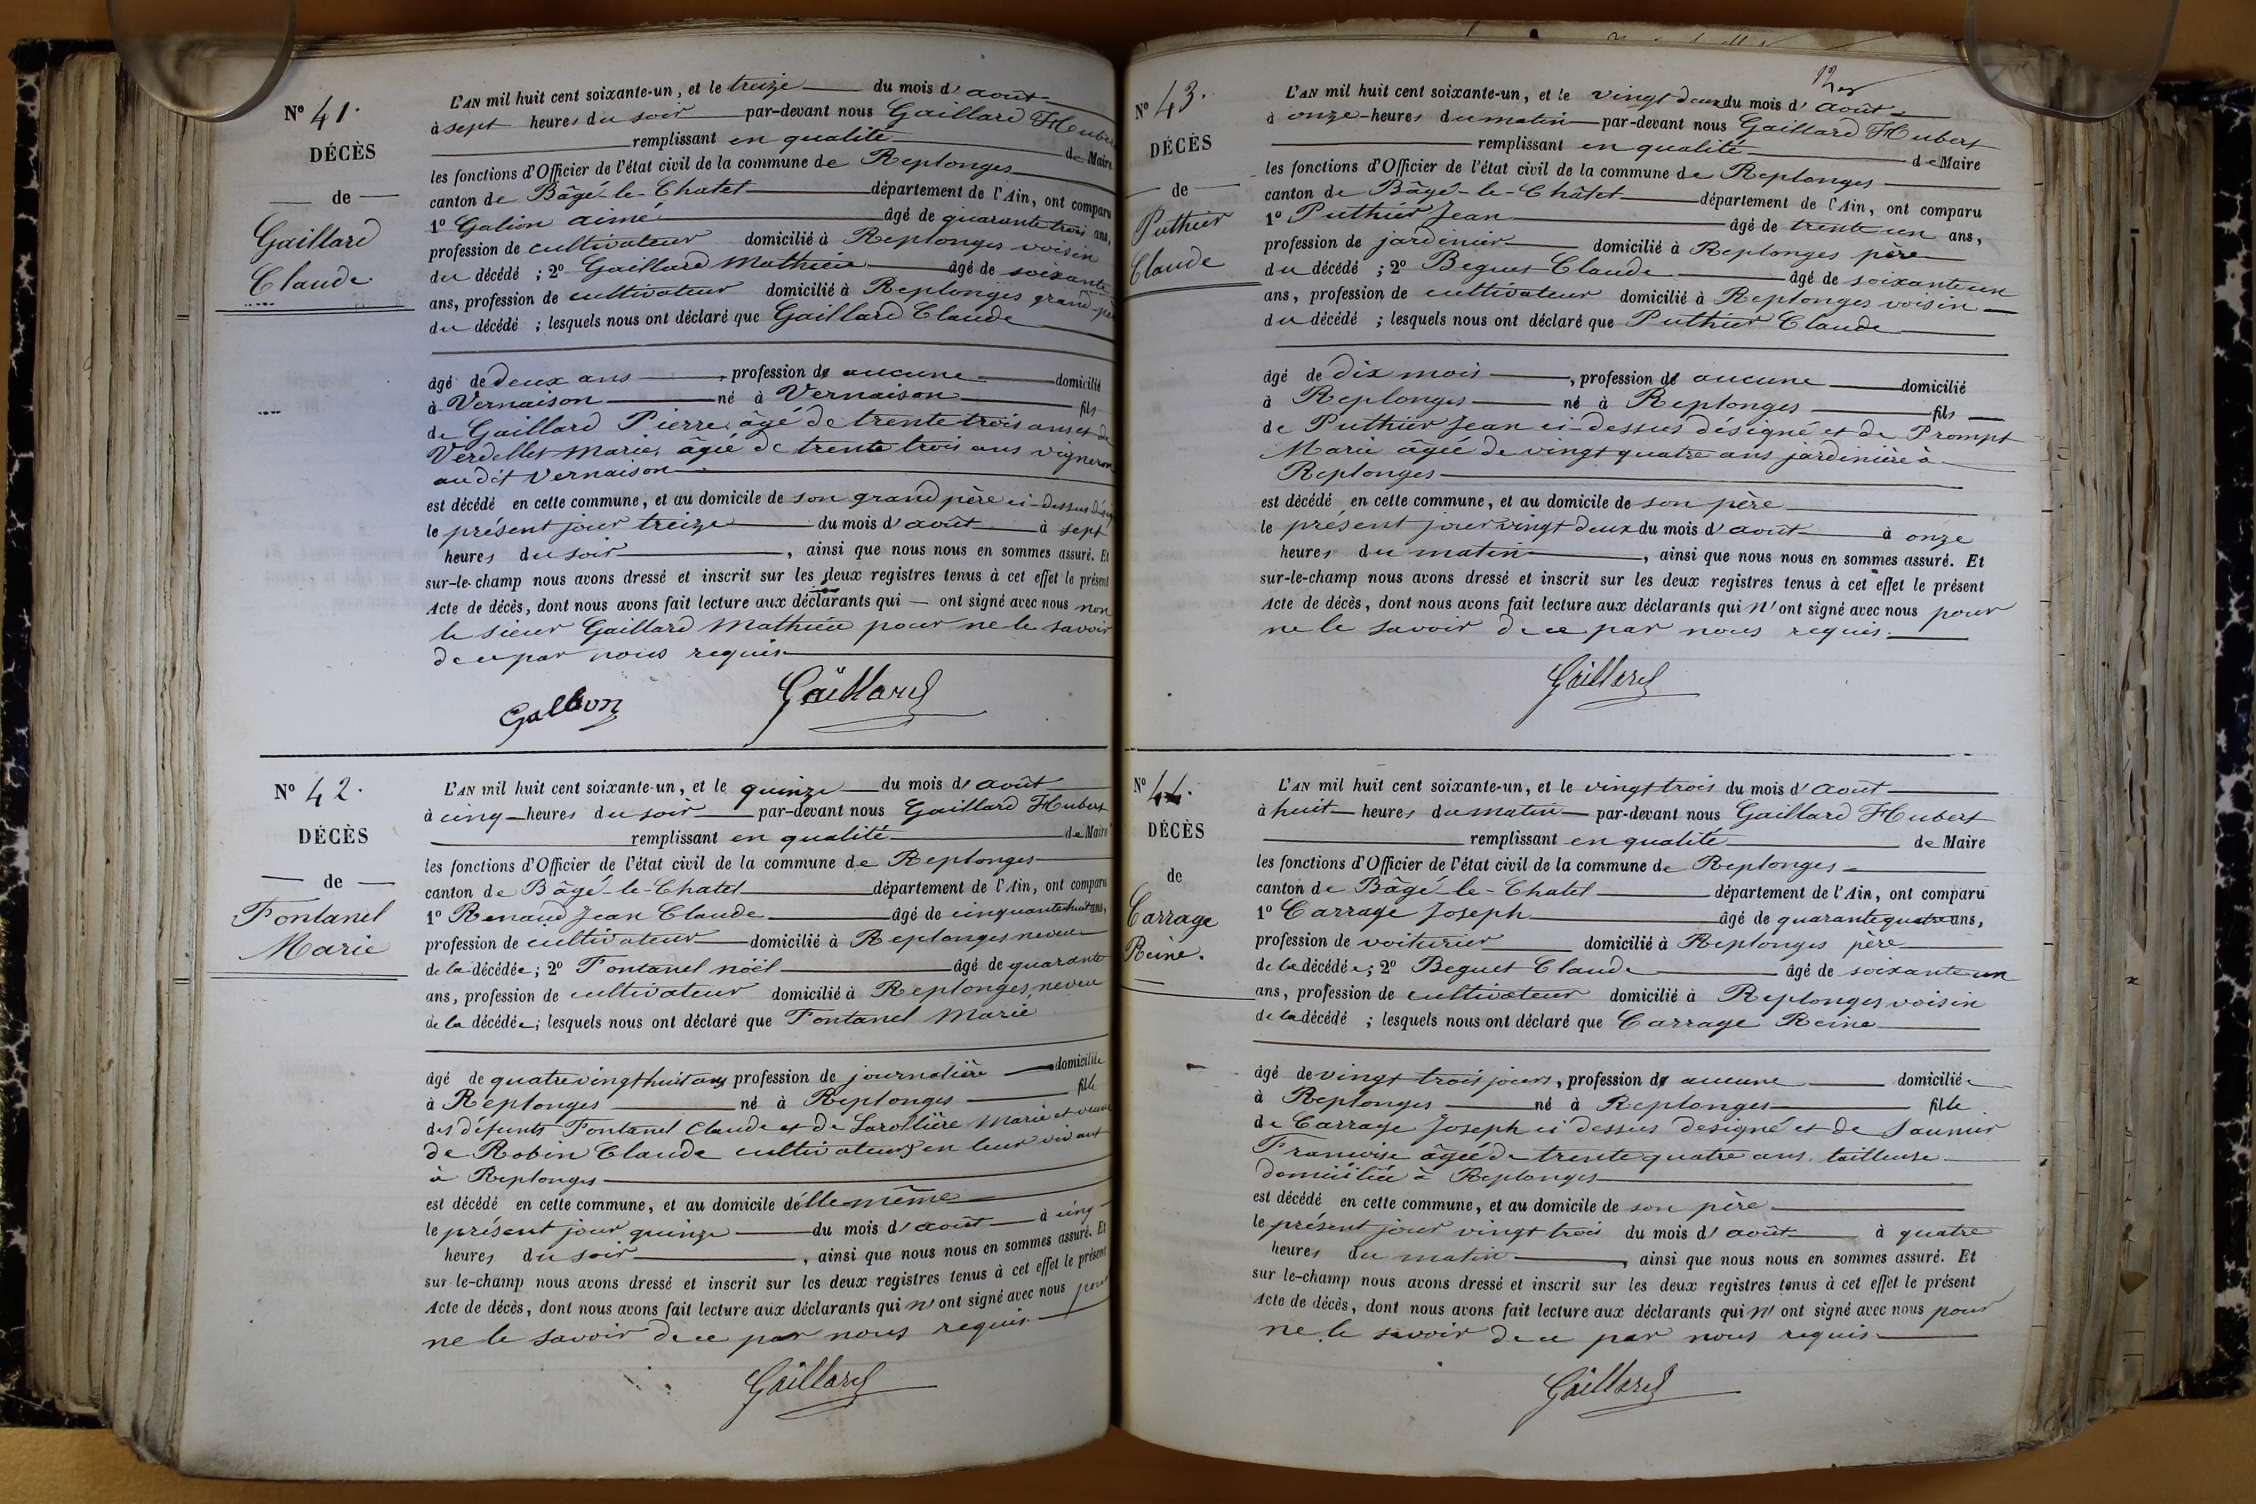 Nº 41.
DÉCÈS
de
Gaillard
Claude
L'AN mil huit cent soixante-un, et le treize du mois d'août
à sept heures du soir par-devant nous Gaillard Hubert
remplissant en qualité de Maire
les fonctions d'Officier de l'état civil de la commune de Replonges
canton de Bâgé-le-Chatel département de l'Ain, ont comparu
1º Galion aimé âgé de quarante trois ans,
profession de cultivateur domicilié à Replonges voisin
du décédé ; 2º Gaillard Mathieu âgé de soixante
ans, profession de cultivateur domicilié à Replonges grand père
du décédé ; lesquels nous ont déclaré que Gaillard Claude
âgé de deux ans, profession de aucune domicilié
à Vernaison né à Vernaison fils
de Gaillard Pierre âgé de trente trois ans et de
Verdellet Marie, âgée de trente trois ans vigneron
au dit Vernaison
est décédé en cette commune, et au domicile de son grand père ci-dessus désigné
le présent jour treize du mois d'août à sept
heures du soir, ainsi que nous nous en sommes assuré. Et
sur-le-champ nous avons dressé et inscrit sur les deux registres tenus à cet effet le présent
Acte de décès, dont nous avons fait lecture aux déclarants qui — ont signé avec nous non
le sieur Gaillard Mathieu pour ne le savoir
de ce par nous requis
Galion Gaillard
Nº 42.
DÉCÈS
de
Fontanel
Marie
L'AN mil huit cent soixante-un, et le quinze du mois d'août
à cinq heures du soir par-devant nous Gaillard Hubert
remplissant en qualité de Maire
les fonctions d'Officier de l'état civil de la commune de Replonges
canton de Bâgé-le-Chatel département de l'Ain, ont comparu
1º Renaud Jean Claude âgé de cinquante huit ans,
profession de cultivateur domicilié à Replonges neveu
de la décédée ; 2º Fontanel nöel âgé de quarante
ans, profession de cultivateur domicilié à Replonges, neveu
de la décédée ; lesquels nous ont déclaré que Fontanel Marie
âgé de quatre vingt huit ans profession de journalière domiciliée
à Replonges né à Replonges fille
des défunts Fontanel Claude et de Larollière Marie et veuve
de Robin Claude cultivateurs en leur vivant
à Replonges
est décédé en cette commune, et au domicile d'elle même
le présent jour quinze du mois d'août à cinq
heures du soir, ainsi que nous nous en sommes assuré. Et
sur-le-champ nous avons dressé et inscrit sur les deux registres tenus à cet effet le présent
Acte de décès, dont nous avons fait lecture aux déclarants qui n'ont signé avec nous pour
ne le savoir de ce par nous requis
Gaillard
Nº 43.
DÉCÈS
de
Puthier
Claude
L'AN mil huit cent soixante-un, et le vingt deux du mois d'août
à onze heures du matin par-devant nous Gaillard Hubert
remplissant en qualité de Maire
les fonctions d'Officier de l'état civil de la commune de Replonges
canton de Bâgé-le-Châtel département de l'Ain, ont comparu
1º Puthier Jean âgé de trente un ans,
profession de jardinier domicilié à Replonges père
du décédé ; 2º Beguet Claude âgé de soixante un
ans, profession de cultivateur domicilié à Replonges voisin
du décédé ; lesquels nous ont déclaré que Puthier Claude
âgé de dix mois, profession de aucune domicilié
à Replonges né à Replonges fils
de Puthier Jean ci-dessus désigné et de Prompt
Marie âgée de vingt quatre ans jardinière à
Replonges
est décédé en cette commune, et au domicile de son père
le présent jour vingt deux du mois d'août à onze
heures du matin, ainsi que nous nous en sommes assuré. Et
sur-le-champ nous avons dressé et inscrit sur les deux registres tenus à cet effet le présent
Acte de décès, dont nous avons fait lecture aux déclarants qui n'ont signé avec nous pour
ne le savoir de ce par nous requis.
Gaillard
Nº 44.
DÉCÈS
de
Carrage
Reine.
L'AN mil huit cent soixante-un, et le vingt trois du mois d'août
à huit heures du matin par-devant nous Gaillard Hubert
remplissant en qualité de Maire
les fonctions d'Officier de l'état civil de la commune de Replonges
canton de Bâgé-le-Chatel département de l'Ain, ont comparu
1º Carrage Joseph âgé de quarante quatre ans,
profession de voiturier domicilié à Replonges père
de la décédée ; 2º Beguet Claude âgé de soixante un
ans, profession de cultivateur domicilié à Replonges voisin
de la décédé ; lesquels nous ont déclaré que Carrage Reine
âgé de vingt trois jours, profession de aucune domiciliée
à Replonges né à Replonges fille
de Carrage Joseph ci dessus désigné et de Saunier
Francoise âgée de trente quatre ans, tailleuse
domiciliée à Replonges
est décédé en cette commune, et au domicile de son père
le présent jour vingt trois du mois d'août à quatre
heures du matin, ainsi que nous nous en sommes assuré. Et
sur le-champ nous avons dressé et inscrit sur les deux registres tenus à cet effet le présent
Acte de décès, dont nous avons fait lecture aux déclarants qui n'ont signé avec nous pour
ne le savoir de ce par nous requis
Gaillard